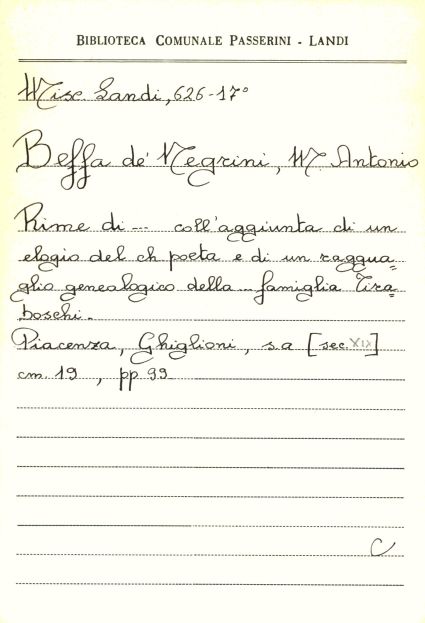 BIBLIOTECA COMUNALE PASSERINI - LANDI
Misc Landi, 626-17°
Beffa de' Negrini, M Antonio
Rime di --- coll'aggiunta di un
elogio del ch poeta e di un raggua=
glio genealogico della ... famiglia Tira=
boschi.
Piacenza, Ghiglioni, s.a [sec. XIX]
cm. 19 , pp 99
C